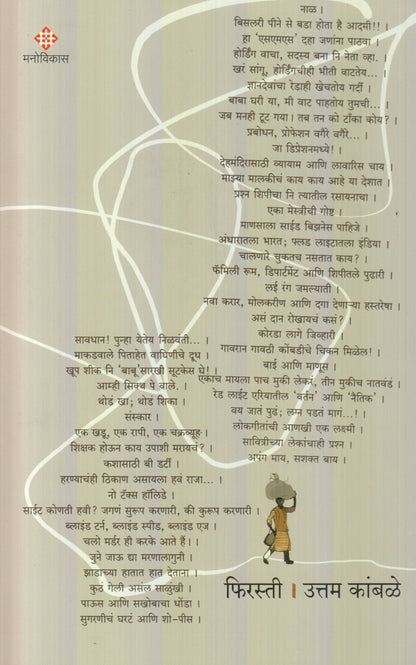 मनोविकास
नाळ ।
बिसलरी पीने से बडा होता है आदमी!! ।
हा 'एसएमएस' दहा जणांना पाठवा ।
होर्डिंग वाचा, सदस्य बना नि नेता व्हा. ।
खरं सांगू, होर्डिंगचीही भीती वाटतेय... ।
ज्ञानदेवाचा रेडाही खेचतोय गर्दी ।
बाबा घरी या, मी वाट पाहतोय तुमची... ।
जब मनही टूट गया। तब तन को टाँका कोय? ।
प्रबोधन, प्रोफेशन वगैरे वगैरे... ।
जा डिप्रेशनमध्ये! ।
देहमंदिरासाठी व्यायाम आणि लावारिस चाय ।
माझ्या मालकीचं काय काय आहे या देशात ।
प्रश्न शिपीचा नि त्यातील रसायनाचा ।
एका मेस्त्रीची गोष्ट ।
माणसाला साईड बिझनेस पाहिजे ।
अंधारातला भारत; फ्लड लाइटातला इंडिया ।
चालणारे चुकतच नसतात काय? ।
फॅमिली रूम, डिपार्टमेंट आणि शिपीतले पुढारी ।
लई रंग जमल्याती ।
नवा करार, मोलकरीण आणि दगा देणाऱ्या हस्तरेषा ।
असं दान रोखायचं कसं? ।
कोरडा लागे जिव्हारी ।
गावरान गावठी कोंबडीचे चिकन मिळेल! ।
बाई आणि माणूस ।
एकाच मायला पाच मुकी लेकरं, तीन मुकीच नातवंडं ।
रेड लाईट एरियातील 'वर्तन' आणि 'नैतिक' ।
वय जातं पुढं; लग्न पडतं मागं...! ।
लोकगीतांची आणखी एक लक्ष्मी ।
सावित्रीच्या लेकांचाही प्रश्न ।
अपंग माय, सशक्त बाय ।
सावधान! पुन्हा येतेय निळवंती... ।
माकडवाले पिताहेत वाघिणीचे दूध ।
खूप शीक नि 'बाबू'सारखी सूटकेस घे! ।
आम्ही सिक्थ पे वाले. ।
थोडं खा; थोडं शिका ।
संस्कार ।
एक खडू, एक रापी, एक चक्रव्यूह ।
शिक्षक होऊन काय उपाशी मरायचं? ।
कशासाठी बी डर्टी ।
हरण्याचंही ठिकाण असायला हवं राजा... ।
नो टॅक्स हॉलिडे ।
साईट कोणती हवी? जगणं सुरूप करणारी, की कुरूप करणारी ।
ब्लाइंड टर्न, ब्लाइंड स्पीड, ब्लाइंड एज ।
चलो मर्डर ही करके आते हैं। ।
जुने जाऊ द्या मरणालागुनी ।
झाडांच्या हातात हात देताना ।
कुठं गेली असंल साळुंखी ।
पाऊस आणि सखोबाचा धोंडा ।
सुगरणीचं घरटं आणि शो-पीस ।
फिरस्ती । उत्तम कांबळे